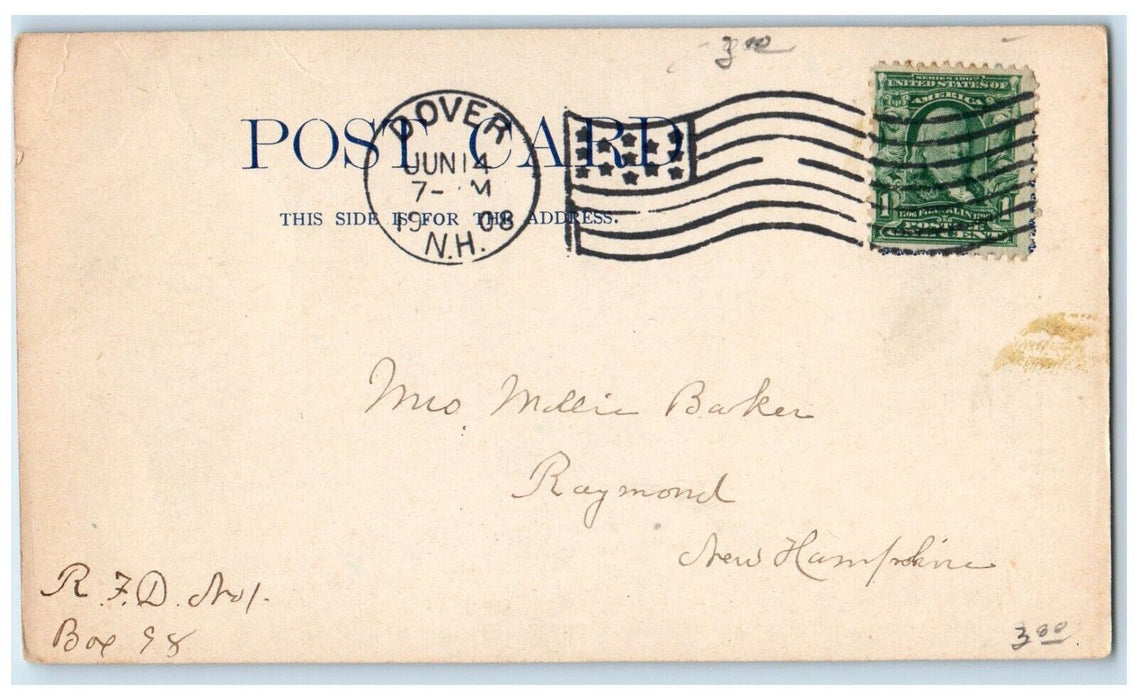 3.00
SERIES 1902
UNITED STATES OF
AMERICA
POST CARD
DOVER
JUN 14
7- M
1908
N.H.
THIS SIDE IS FOR THE ADDRESS.
1 FRANKLIN 1
POSTAGE
ONE CENT
Mrs Millie Baker
Raymond
New Hampshire
R.F.D. No 1.
Box 98
3.00